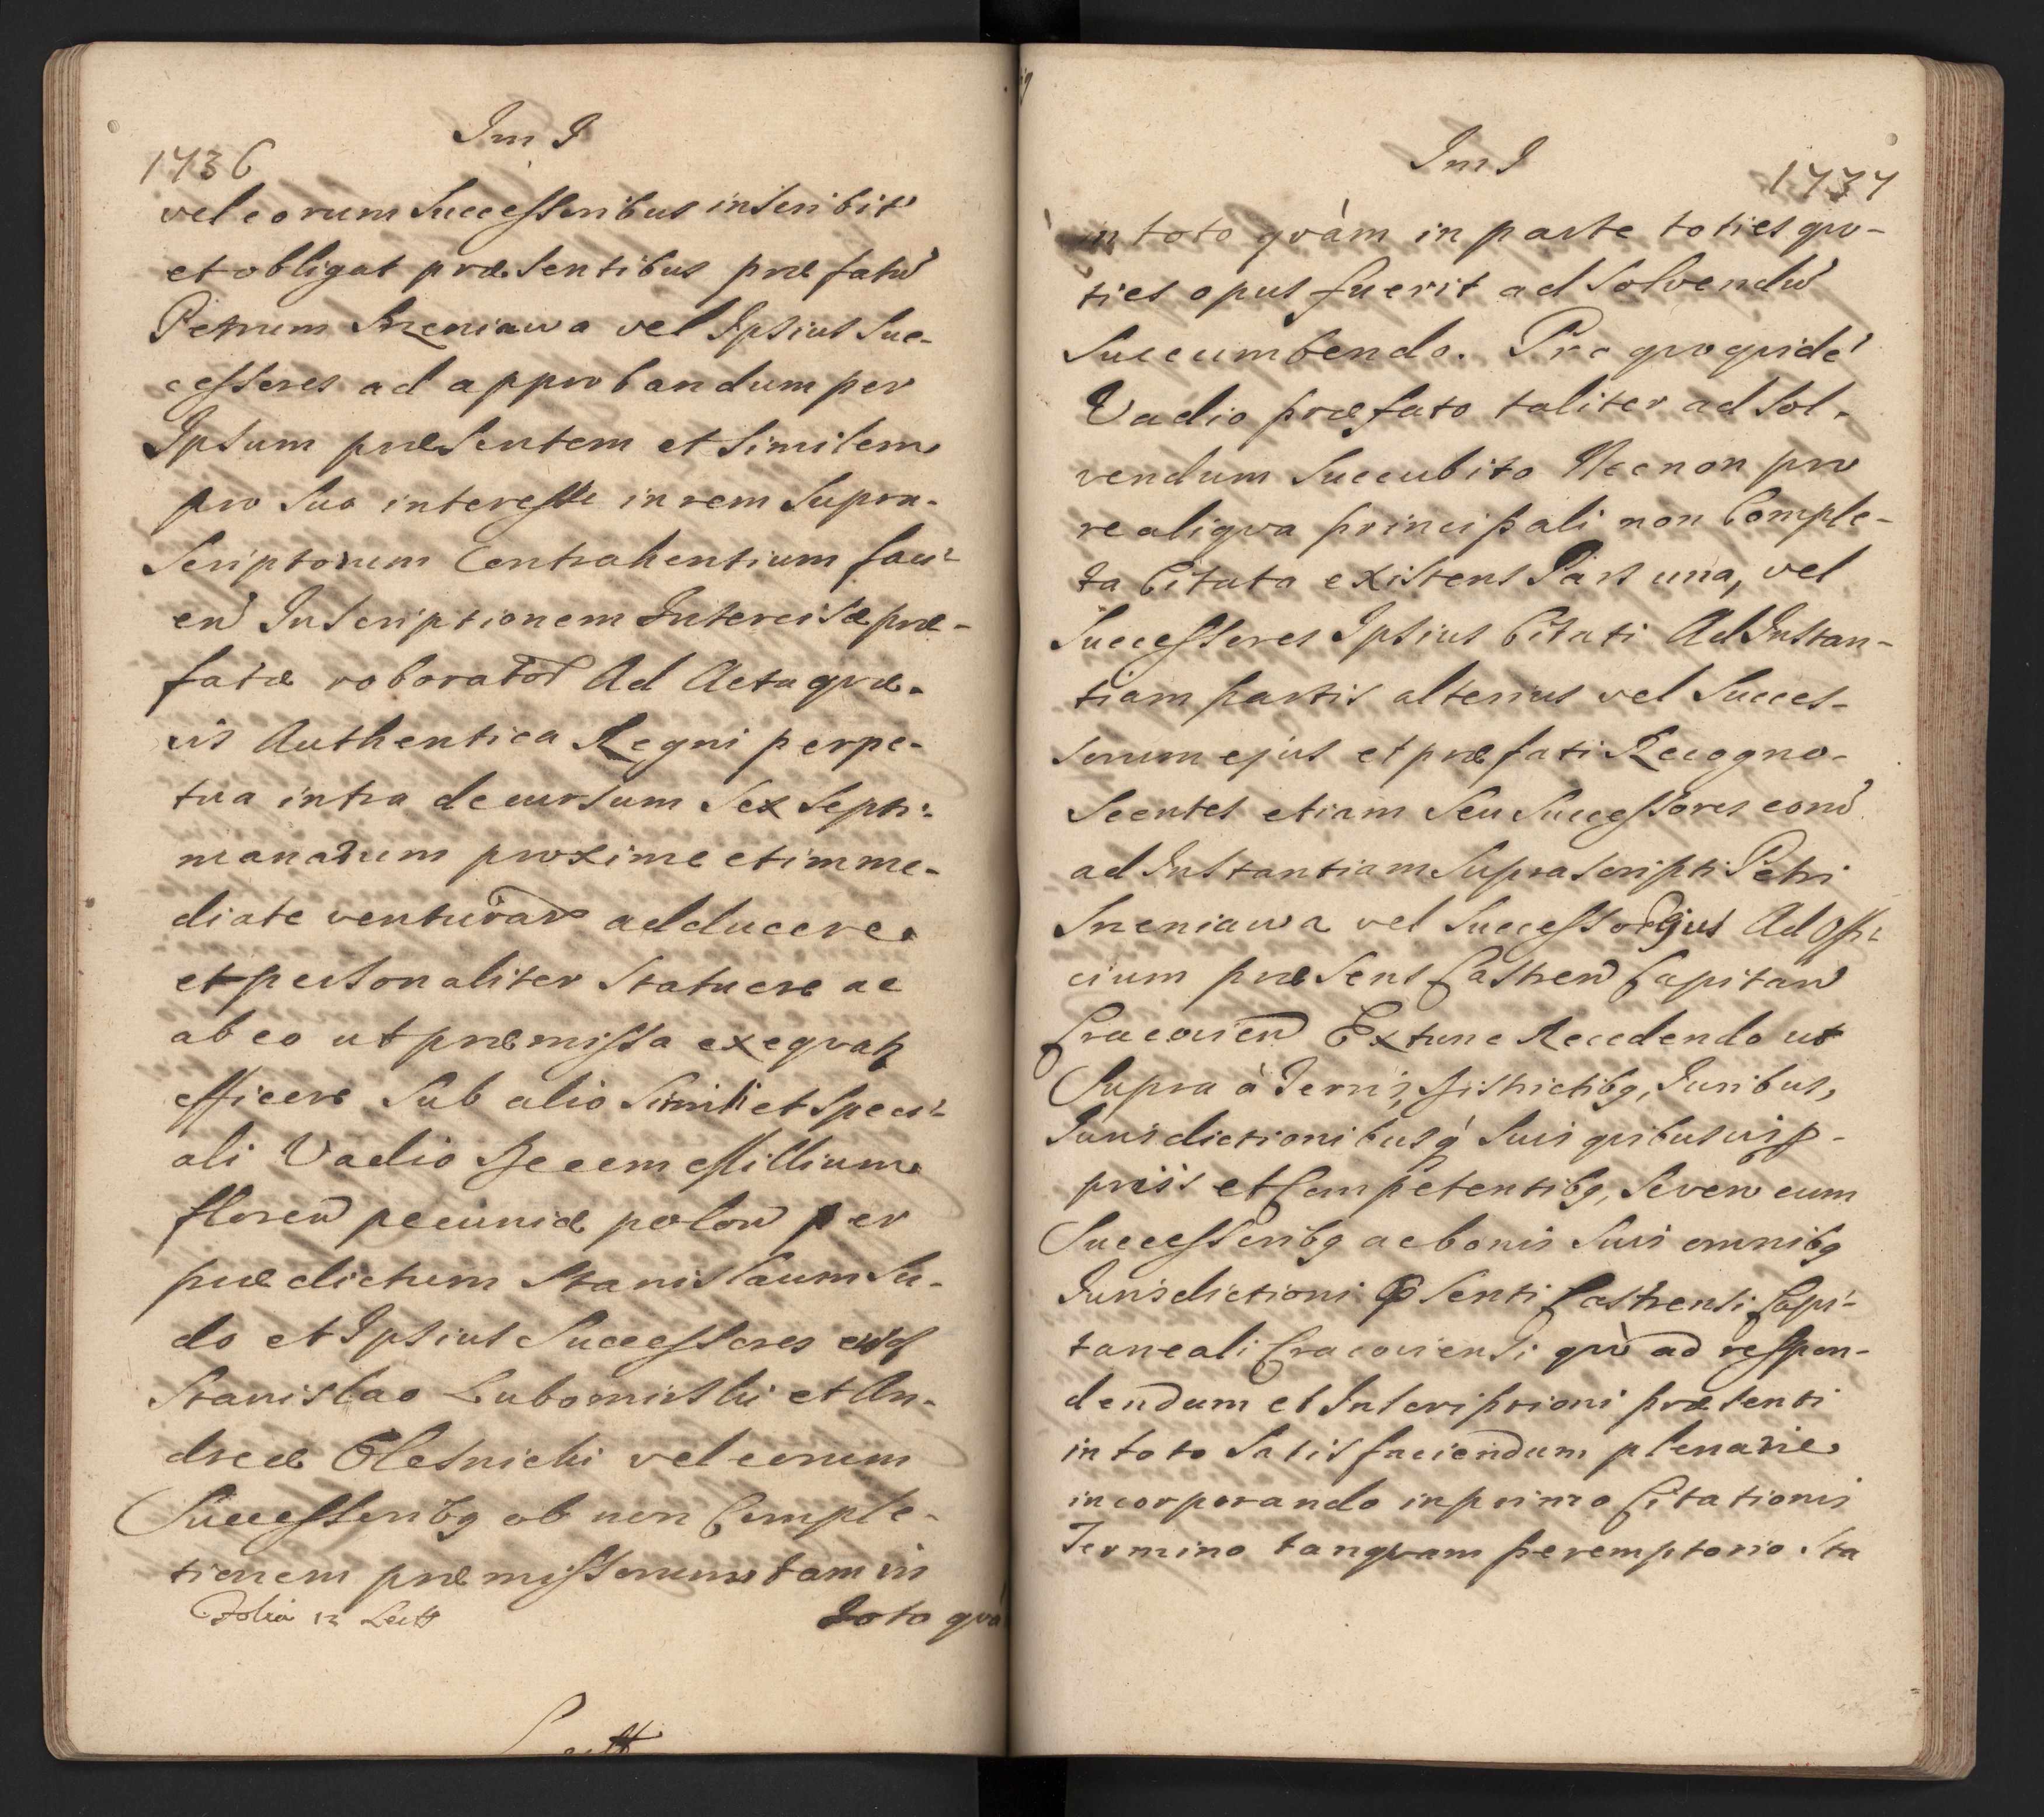 Im I
1736
vel eorum Successoribus inscribit
et obligat præsentibus præfatũ
Petrum Szreniawa vel Ipsius Suc-
cessores ad approbandum per
Ipsum præsentem et similem
pro suo interesse in rem supra-
scriptorum Contrahentium faci-
en̄ Inscriptionem Intercisæ præ-
fatæ roborator̄ Ad Acta quæ-
vis Authentica Regni perpe-
tua intra decursum sex septi-
manarum proxime et imme-
diate venturar̄ adducere
et personaliter statuere ac
ab eo ut præmissa exequat̄
efficere sub alio simili et speci-
ali Vadio Decem Millium
floren̄ pecuniæ polon̄ per
prædictum Stanislaum Lu-
do et Ipsius Successores
Stanislao Lubomirski et An-
dreæ Olesnicki vel eorum
Successoribq ob non Comple-
tionem præmissorum tam in
Folia 12 Lect
toto quà
Im I
1737
in toto quàm in parte toties quo-
ties opus fuerit ad solvendũ
succumbendo. Pro quoquidē
Vadio præfato taliter ad sol-
vendum succubito Necnon pro
re aliqva principali non Comple-
ta Citata existens Pars una, vel
Successores Ipsius Citati Ad Instan-
tiam partis alterius vel Succes-
sorum ejus et præfati Recogno-
scentes etiam seu Successores eorũ
ad Instantiam suprascripti Petri
Szreniawa vel Successor̄ ejus Ad Offi-
cium præsens Castren̄ Capitan̄
Cracovien̄ Extunc Recedendo ut
Supra à Terris, Districtibq, Juribus,
Jurisdictionibusq suis quibusvis p-
priis et Competentibq, se vero cum
Successoribq ac bonis suis omnibq
Jurisdictioni p̄senti Castrensi Capi-
taneali Cracoviensi qùo ad respon-
dendum et Inscriptioni præsenti
in toto satisfaciendum plenarie
incorporando in primo Citationis
Termino tanqvam peremptorio sta
Lectt